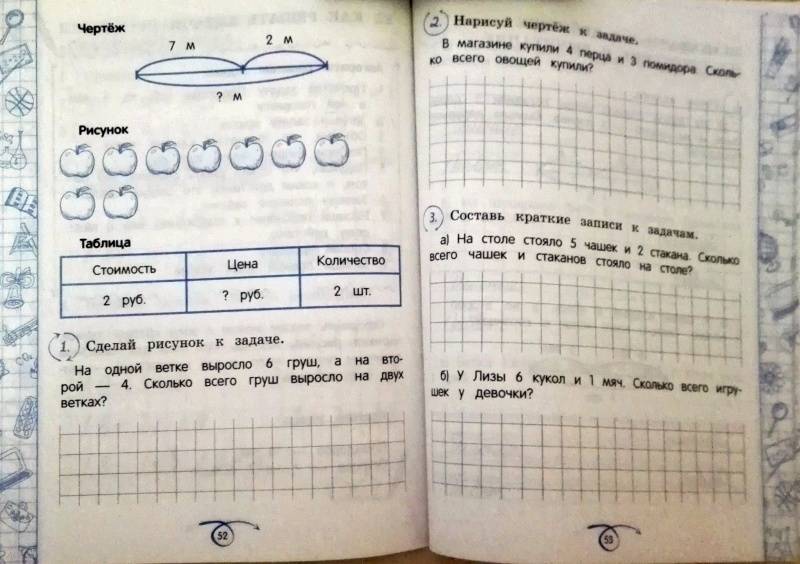 Чертёж
7 м
2 м
? м
Рисунок
Таблица
Стоимость Цена Количество
2 руб. ? руб. 2 шт.
1. Сделай рисунок к задаче.
На одной ветке выросло 6 груш, а на вто-
рой — 4. Сколько всего груш выросло на двух
ветках?
52
2. Нарисуй чертёж к задаче.
В магазине купили 4 перца и 3 помидора. Сколь-
ко всего овощей купили?
3. Составь краткие записи к задачам.
а) На столе стояло 5 чашек и 2 стакана. Сколько
всего чашек и стаканов стояло на столе?
б) У Лизы 6 кукол и 1 мяч. Сколько всего игру-
шек у девочки?
53